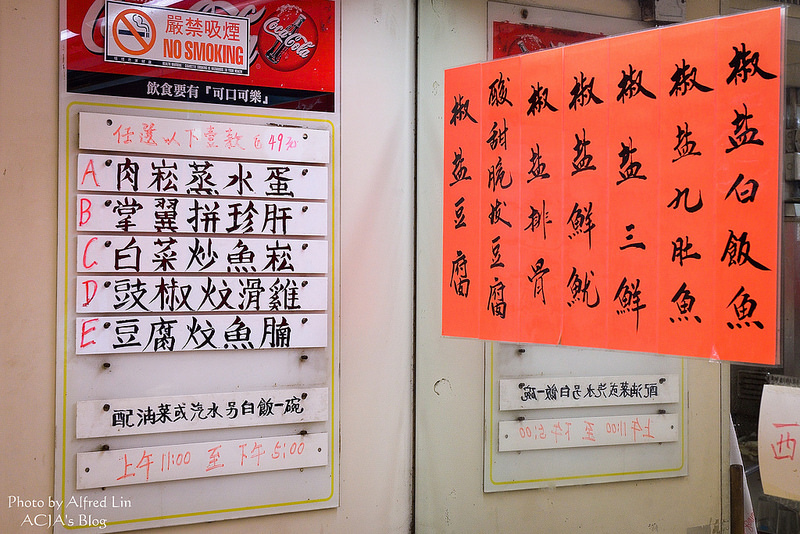 嚴禁吸煙
NO SMOKING
Coca-Cola
飲食要有『可口可樂』
任選以下壹款 49元
A 肉崧蒸水蛋
B 掌翼拼珍肝
C 白菜炒魚崧
D 豉椒炆滑雞
E 豆腐炆魚腩
配油菜或汽水另白飯一碗
上午11:00 至 下午5:00
椒盐白飯魚
椒盐九肚魚
椒盐三鮮
椒盐鮮魷
椒盐排骨
酸甜脆皮豆腐
椒盐豆腐
西
Photo by Alfred Lin
ACJA's Blog